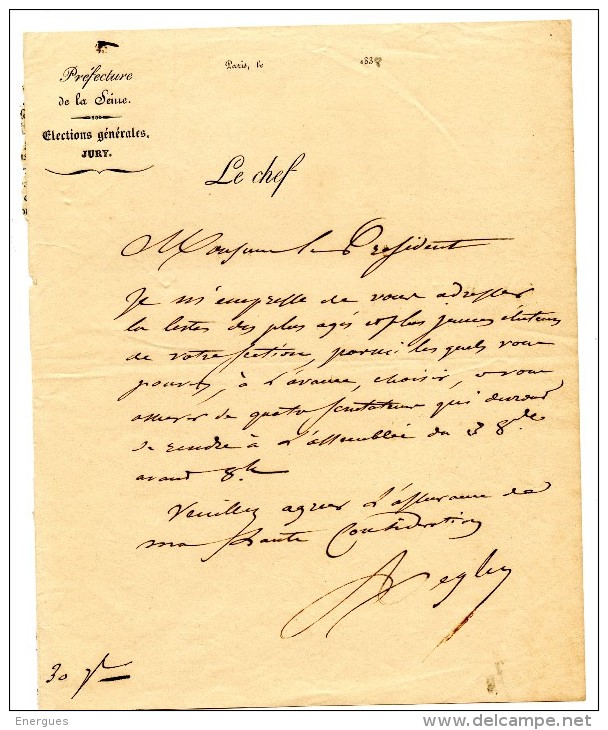 Préfecture
de la Seine.
Elections générales.
JURY.
Paris, le 183
Le chef
Monsieur le Président
Je m'empresse de vous adresser
la listes des plus agés et plus jeunes électeurs
de votre section, parmi les quels vous
pouvez, à l'avance, choisir, et vous
assurer de quatre scrutateurs qui devront
se rendre à l'assemblée du 3 8bre
avant 8h
Veuillez agréer l'assurance de
ma haute Considération
30 7bre
Energues
www.delcampe.net